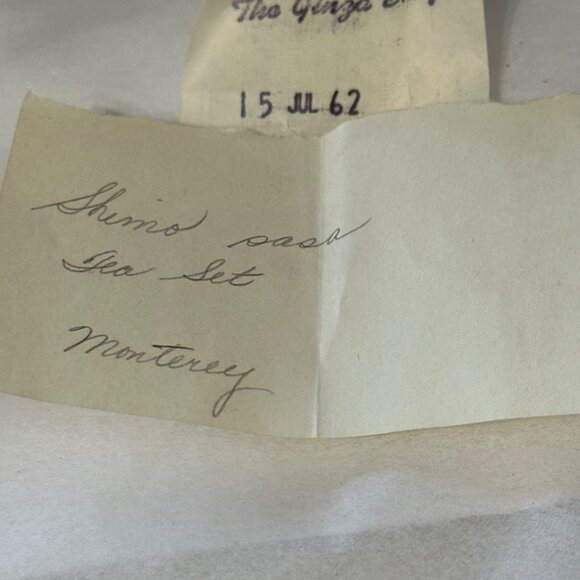 The Ginza
15 JUL 62
Shino sasa
Tea Set
Monterey